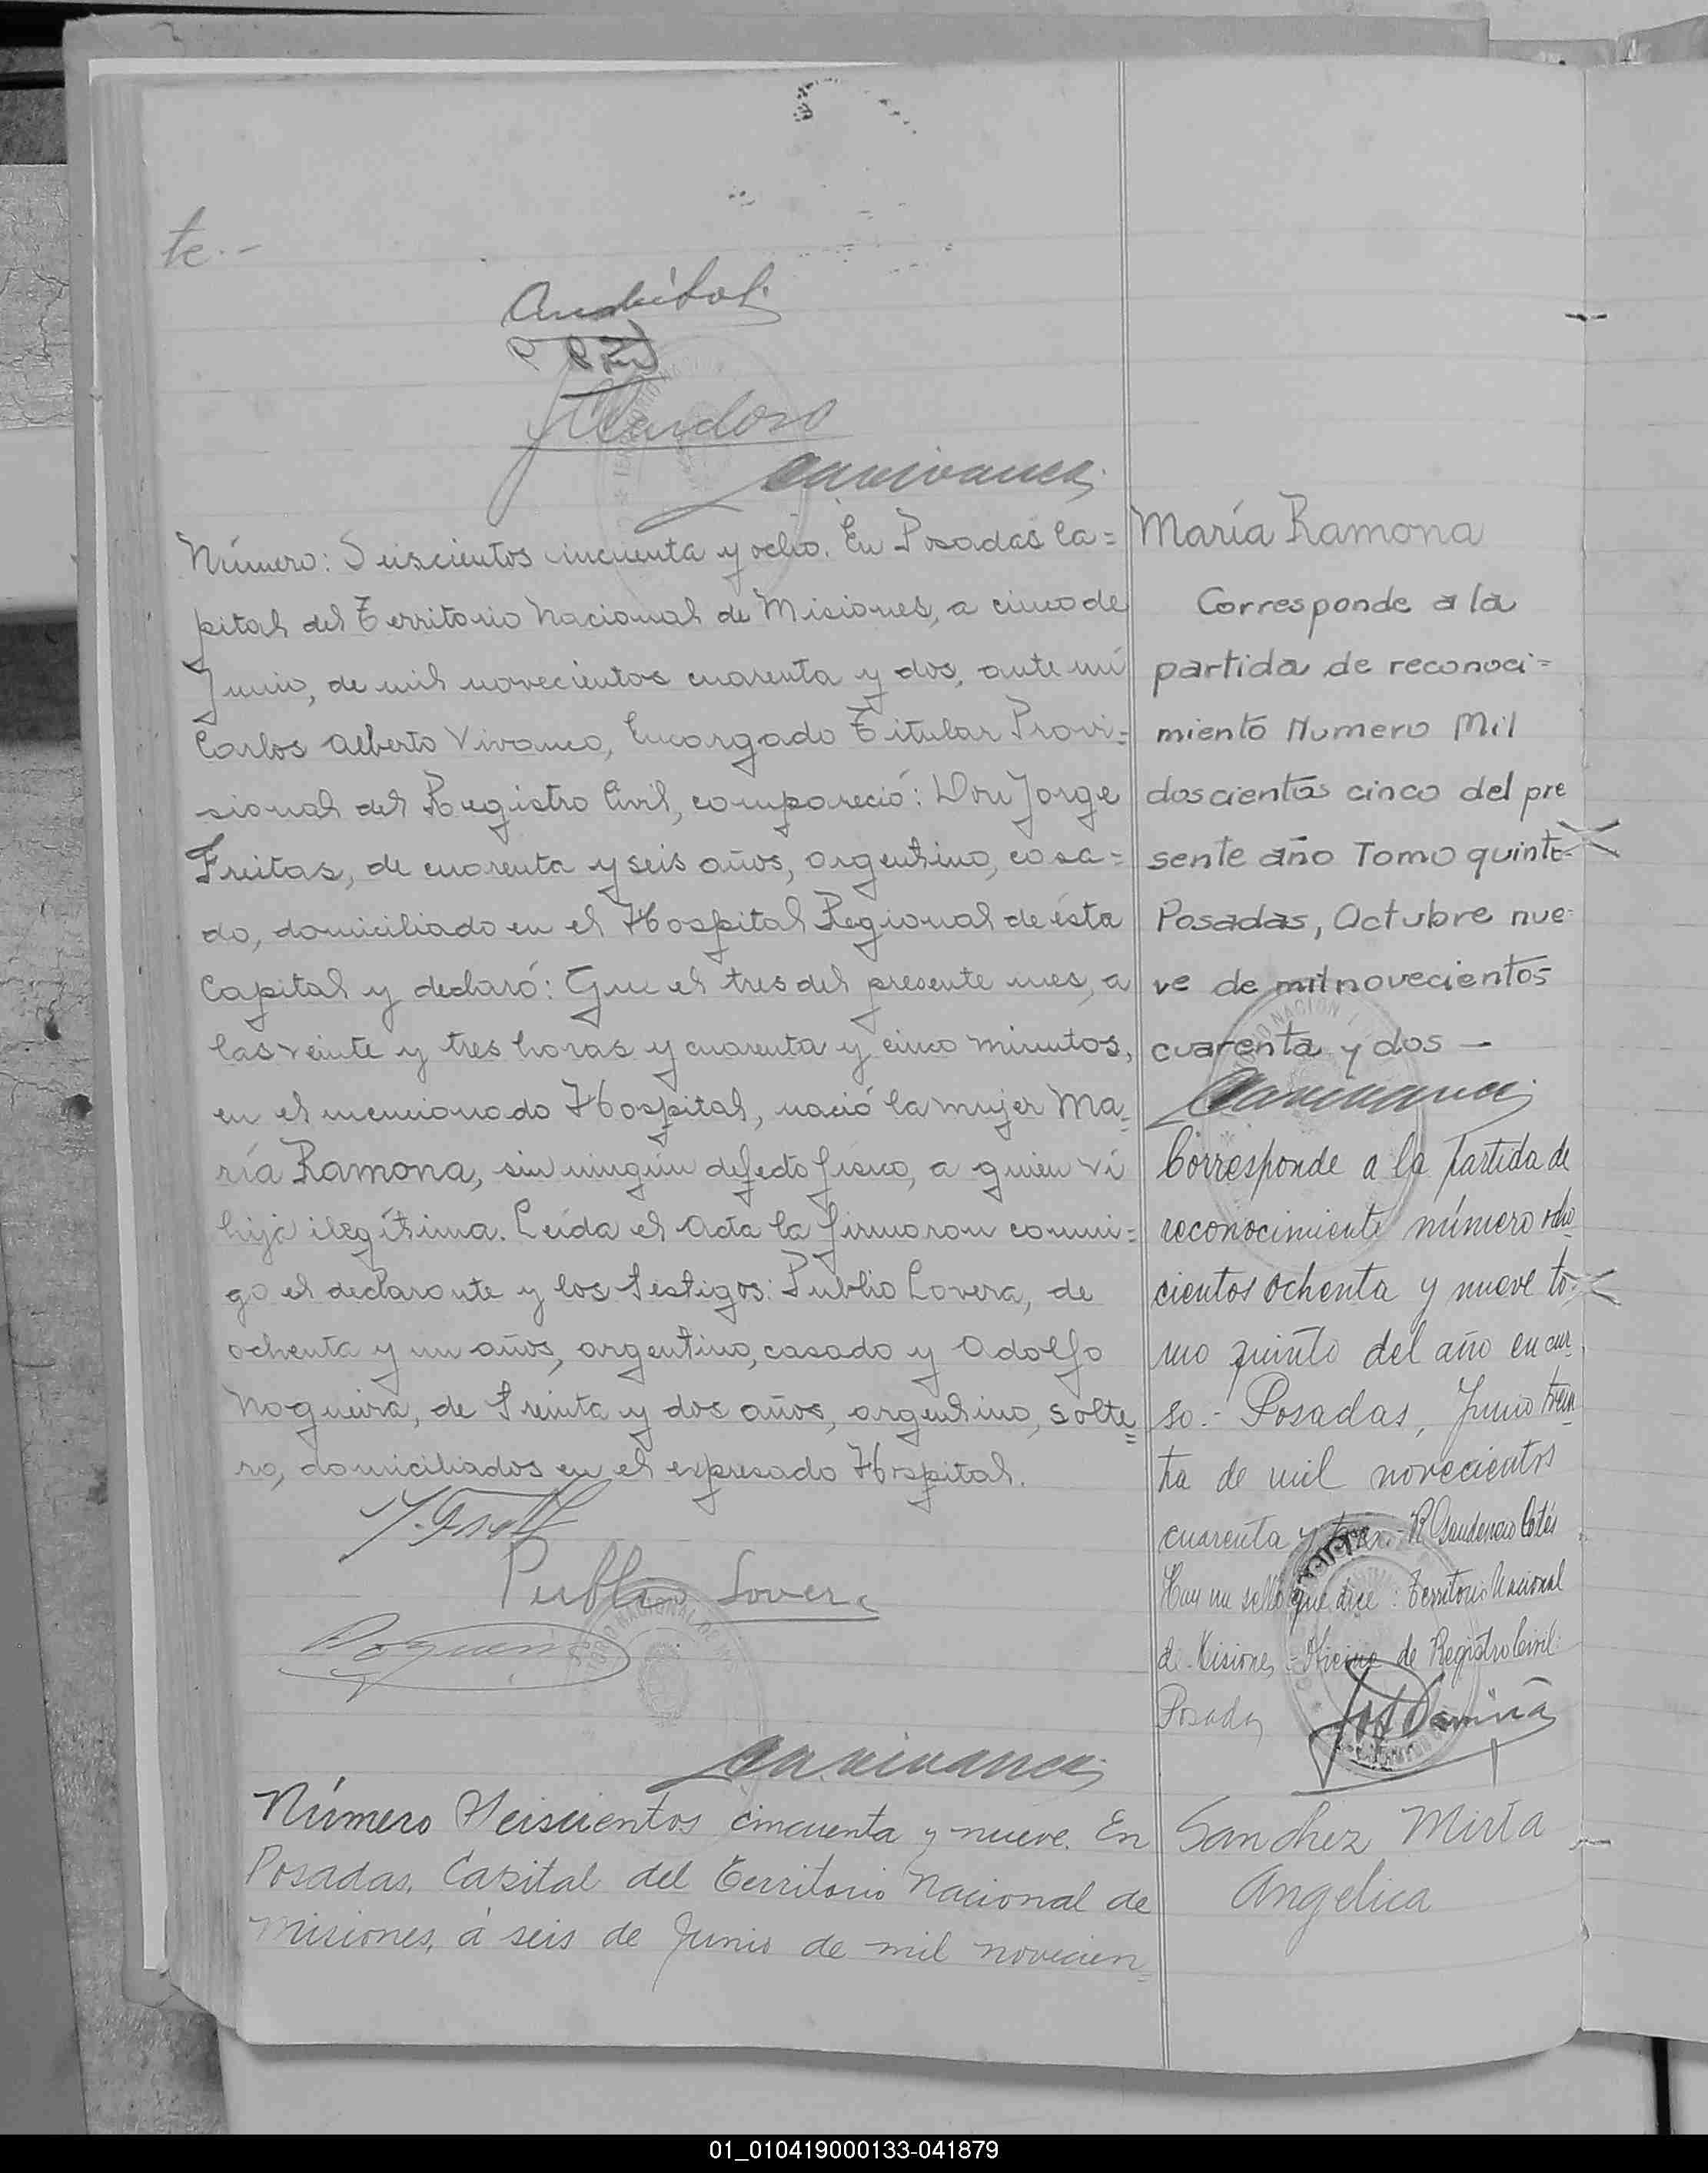 te.-
Número: Seiscientos cincuenta y ocho. En Posadas Ca=
pital del Territorio Nacional de Misiones, a cinco de
Junio, de mil novecientos cuarenta y dos, ante mí
Carlos Alberto Vivanco, Encargado Titular Provi=
sional del Registro Civil, compareció: Don Jorge
Freitas, de cuarenta y seis años, argentino, casa=
do, domiciliado en el Hospital Regional de ésta
Capital y declaró: Que el tres del presente mes, a
las veinte y tres horas y cuarenta y cinco minutos,
en el mencionado Hospital, nació la mujer Ma=
ría Ramona, sin ningún defecto físico, a quien ví
hija ilegítima. Leída el Acta la firmaron conmi=
go el declarante y los testigos: Publio Lovera, de
ochenta y un años, argentino, casado y Adolfo
Nogueira, de treinta y dos años, argentino, solte=
ro, domiciliados en el expresado Hospital.
Publio Lovera
Número Seiscientos cincuenta y nueve. En
Posadas, Capital del Territorio Nacional de
Misiones, á seis de Junio de mil novecien=
María Ramona
Corresponde a la
partida de reconoci=
miento Numero Mil
doscientos cinco del pre
sente año Tomo quinto-
Posadas, Octubre nue=
ve de mil novecientos
cuarenta y dos —
Corresponde a la partida de
reconocimiento número ocho
cientos ochenta y nueve to-
mo quinto del año en cur-
so.- Posadas, Junio trein
ta de mil novecientos
cuarenta y tres.- R Gaudencio Cortés
Hay un sello que dice: Territorio Nacional
de Misiones - Oficina de Registro Civil.
Posadas
Sanchez Mirta
Angelica
01_010419000133-041879